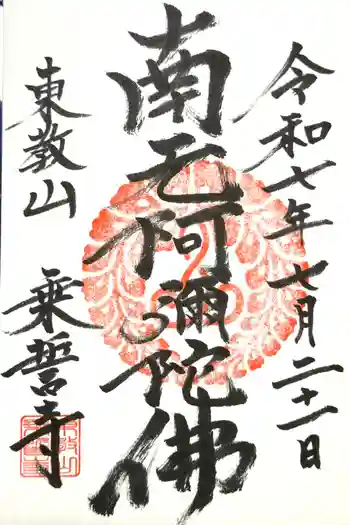 令和七年七月二十一日
南无阿彌陀佛
東教山
乗誓寺